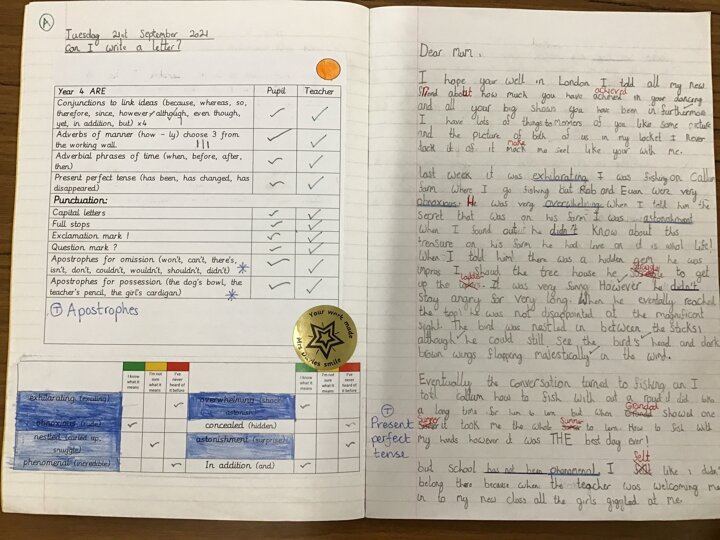 A
Tuesday 21st September 2021
Can I write a letter?
Year 4 ARE Pupil Teacher
Conjunctions to link ideas (because, whereas, so,
therefore, since, however, although, even though,
yet, in addition, but) x4
Adverbs of manner (how – ly) choose 3 from
the working wall.
Adverbial phrases of time (when, before, after,
then)
Present perfect tense (has been, has changed, has
disappeared)
Punctuation:
Capital letters
Full stops
Exclamation mark !
Question mark ?
Apostrophes for omission (won't, can't, there's,
isn't, don't, couldn't, wouldn't, shouldn't, didn't)
Apostrophes for possession (the dog's bowl, the
teacher's pencil, the girl's cardigan)
T Apostrophes
Your work made
Mrs Davies smile
I know what it means I'm not sure what it means I've never heard of it before I know what it means I'm not sure what it means I've never heard of it before
exhilarating (exciting) overwhelming (shock, astonish)
obnoxious (rude) concealed (hidden)
nestled (curled up, snuggle) astonishment (surprise)
phenomenal (incredible) In addition (and)
Dear Mam,
I hope your well in London I told all my new
about how much you have achieved in your dancing
and all your big shows you have been in furthermore
I have lots of things to of you like some picture
and the picture of both of us in my locket I never
tack it of it make me feel like your with me.
last week it was exhilarating I was fishing on Callum
farm where I go fishing but Rob and Euan were very
obnoxious. He was very overwhelming when I told him the
secret that was on his farm I was astonishment
when I found out he didn't know about this
treasure on his farm he had love on it is what life!
When I told him there was a hidden gem he was
I the tree house he struggle to get
up the ladder. It was very funny However he didn't
Stay angry for very long. When he eventually reached
the top he was not disapointed at the magnificent
sight. The bird was nestled in between the sticks
although he could still see the bird's head and dark
brown wings flapping majestically in the wind.
Eventually the conversation turned to fishing an I
told callum how to fish with out a it did take
a long time for him to but when Grandad showed one
it took me the whole Summer to learn. How to fish with
my hands however it was THE best day ever!
T Present
perfect
tense
but school has not been phenomenal I felt like i didn't
belong there because when the teacher was welcoming me
in to my new class all the girls giggled at me.